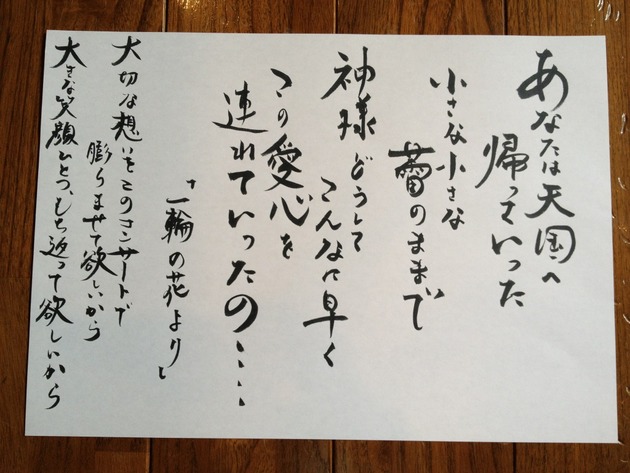 あなたは天国へ
帰っていった
小さな小さな
蕾のままで
神様どうして
こんなに早く
この愛心を
連れていったの・・・・
「一輪の花より」
大切な想いをこのコンサートで
膨らませて欲しいから
大きな笑顔ひとつ、もち返って欲しいから